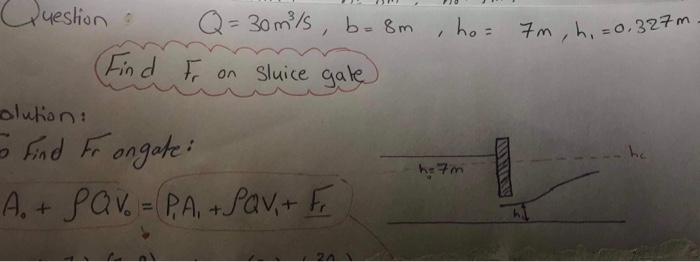 Question : Q = 30 m³/s , b = 8m , h₀ = 7m , h₁ = 0.327m
Find Fr on sluice gate
olution:
o find Fr on gate:
A₀ + ρQV₀ = P₁A₁ + ρQV₁ + Fr
h₀=7m
hc
h₁